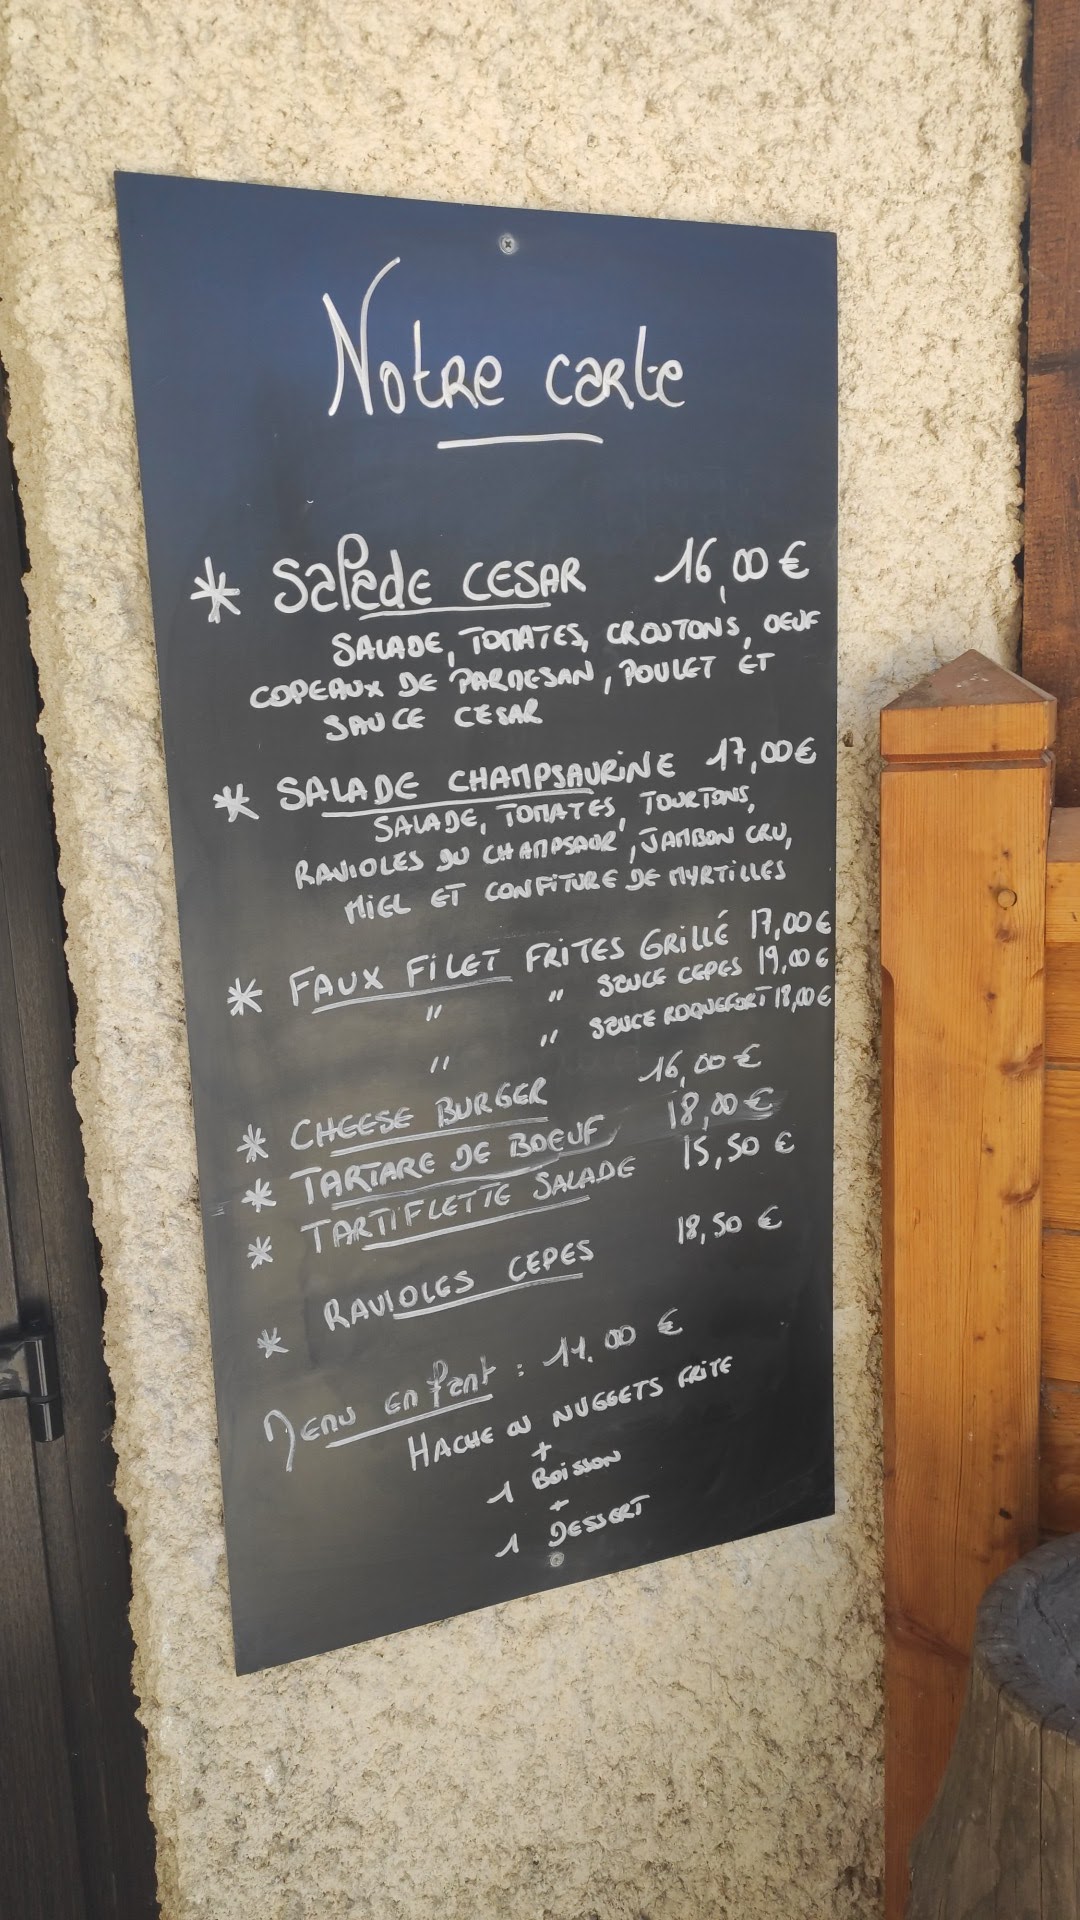 Notre carte
* Salade CESAR 16,00 €
SALADE, TOMATES, CROUTONS, OEUF
COPEAUX DE PARMESAN, POULET ET
SAUCE CESAR
* SALADE CHAMPSAURINE 17,00 €
SALADE, TOMATES, TOURTONS,
RAVIOLES DU CHAMPSAUR, JAMBON CRU,
MIEL ET CONFITURE DE MYRTILLES
* FAUX FILET FRITES GRILLÉ 17,00 €
" " SAUCE CEPES 19,00 €
" " SAUCE ROQUEFORT 18,00 €
* CHEESE BURGER 16,00 €
* TARTARE DE BOEUF 18,00 €
* TARTIFLETTE SALADE 15,50 €
* RAVIOLES CEPES 18,50 €
Menu enfant : 11.00 €
HACHE OU NUGGETS FRITE
+
1 BOISSON
+
1 DESSERT